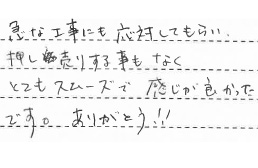 急な工事にも応対してもらい、
押し売りする事もなく
とてもスムーズで 感じが良かった
です。ありがとう!!